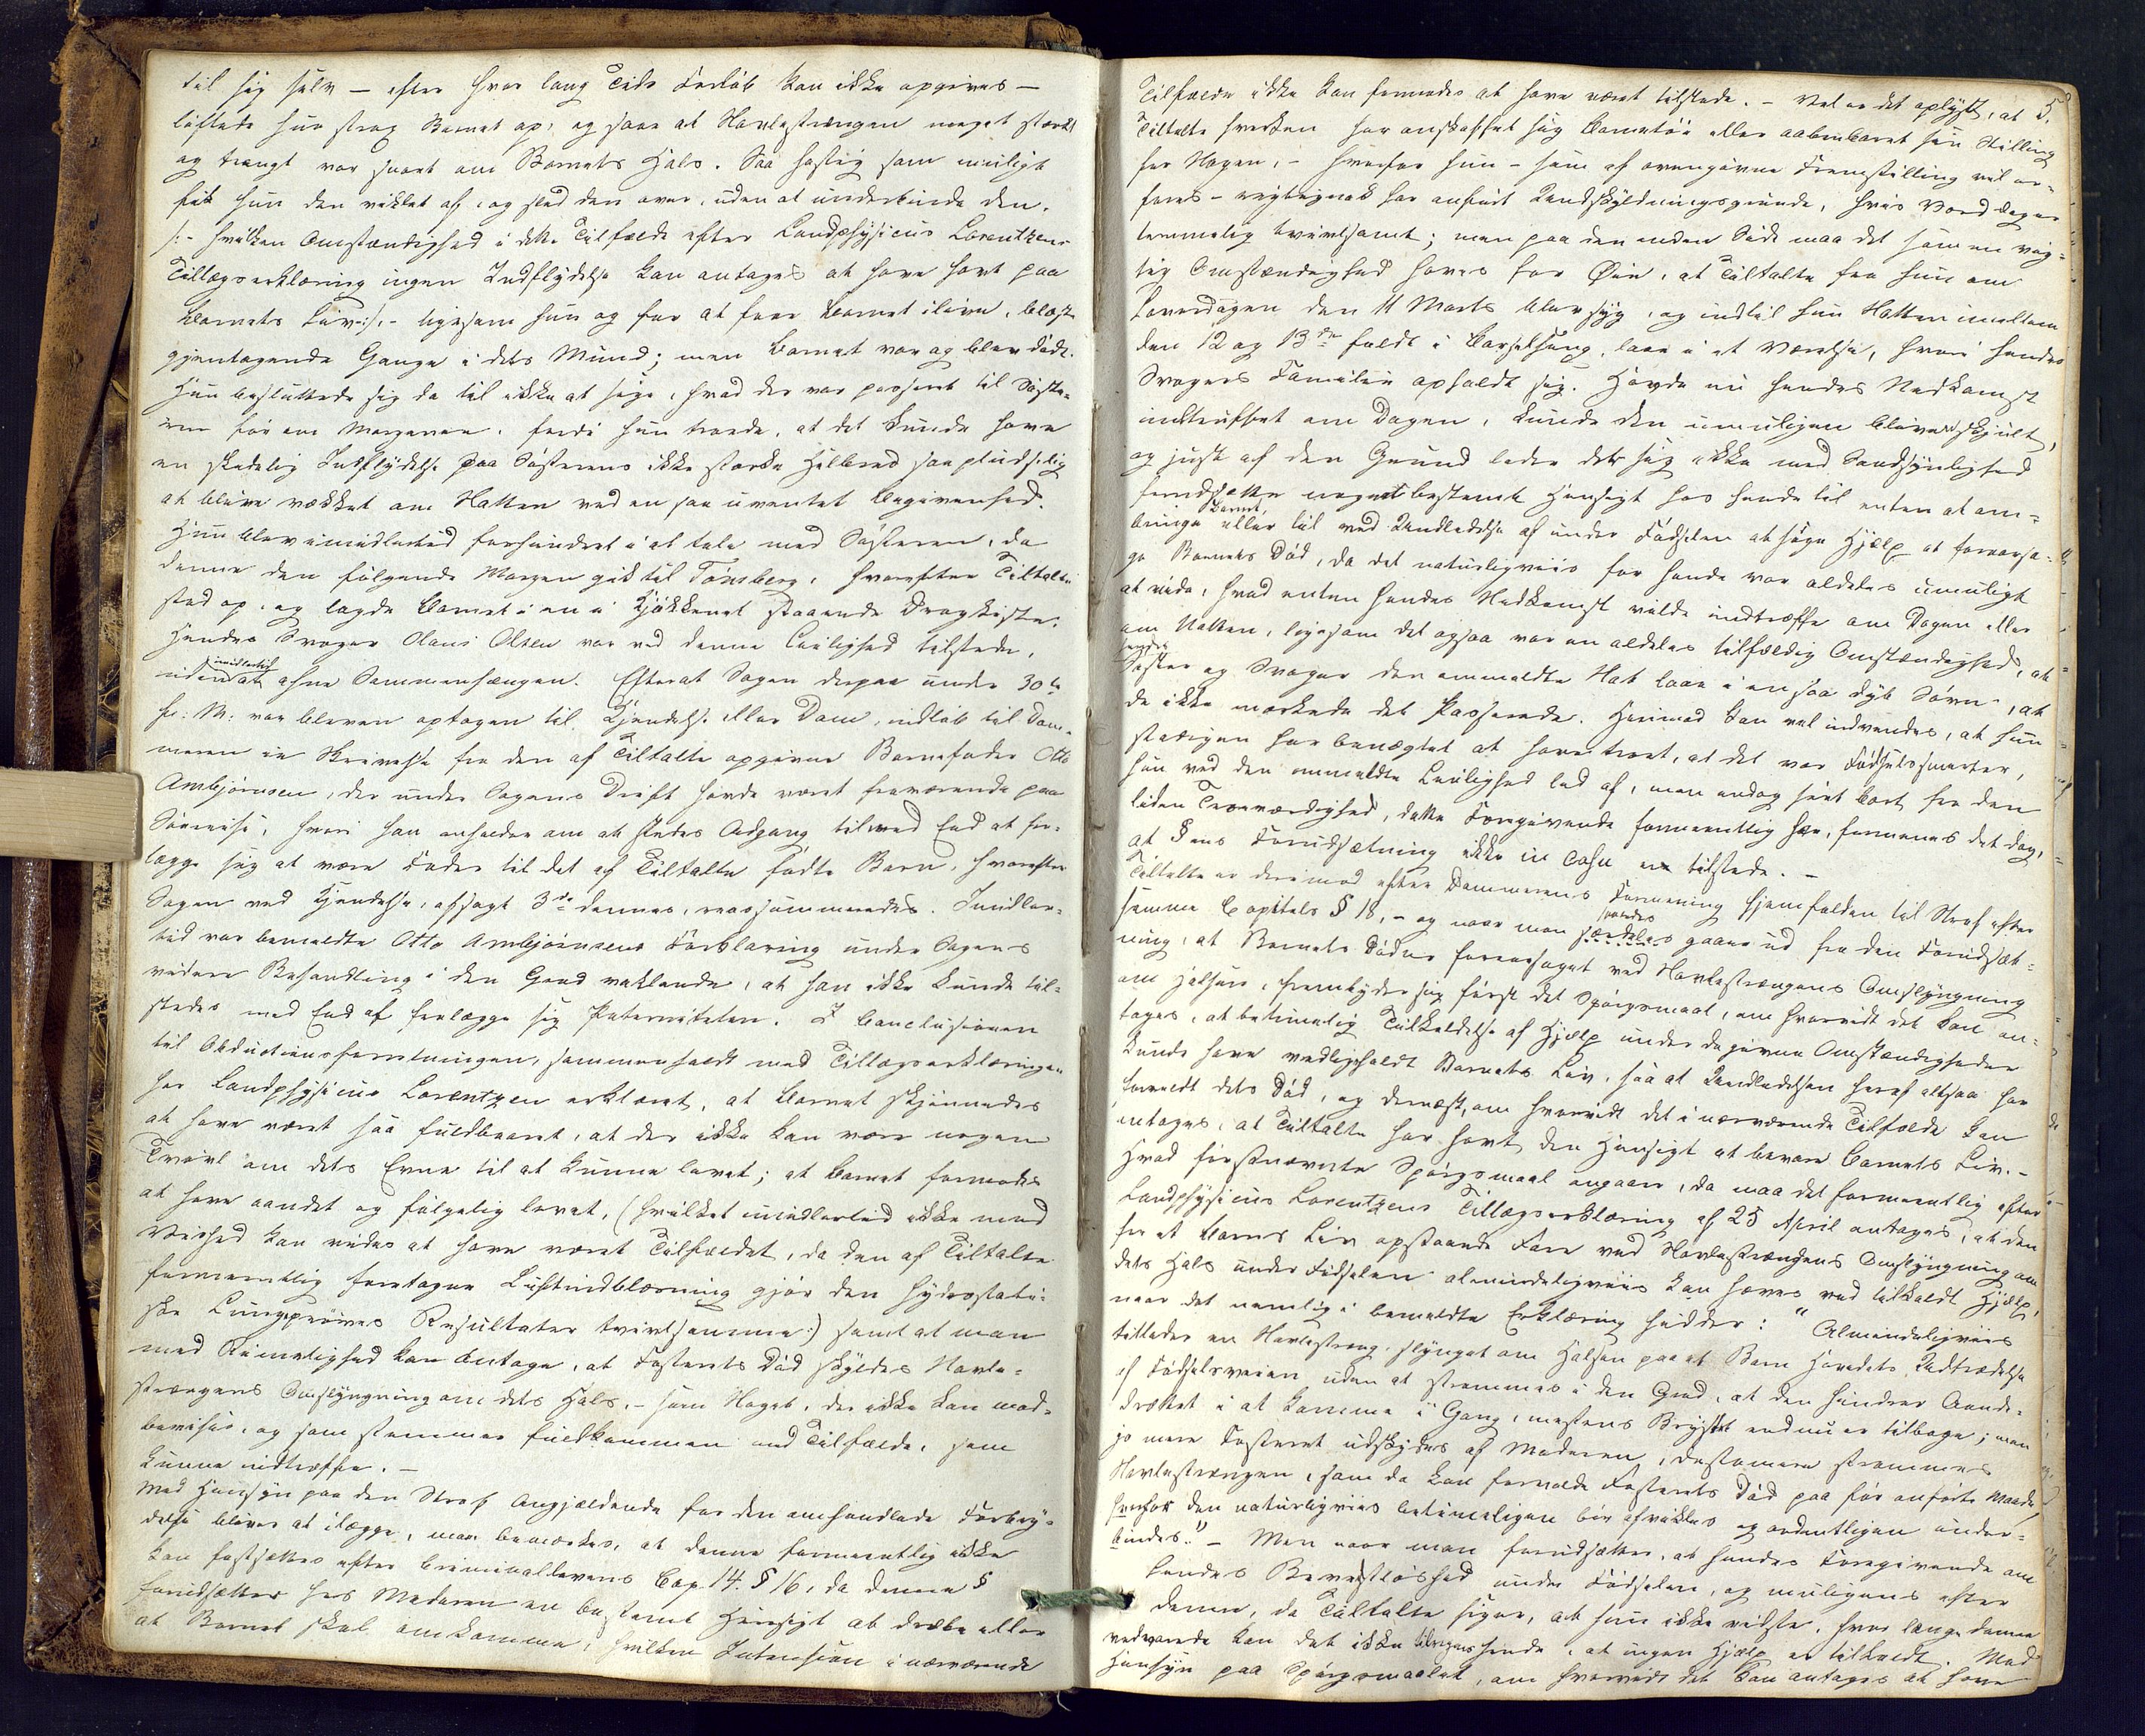 til sig selv – efter hvor lang Tids Forløb kan ikke opgives –
løftede hun strax Barnet op, og saae at Navlestrængen meget stærkt
og trangt var snoet om Barnets Hals. Saa hastig som muligt
fik hun den viklet af, og sled den over, uden at underbinde den.
/:- hvilken Omstændighed i dette Tilfælde efter Landphysicus Lorentzens
Tillægserklæring ingen Indflydelse kan antages at have havt paa
Barnets Liv:/, - ligesom hun og for at faae Barnet ilive, blæste
gjentagende Gange i dets Mund; men Barnet var og blev dødt.
Hun besluttede sig da til ikke at sige, hvad der var passeret til Søste-
ren før om Morgenen, fordi hun troede, at det kunde have
en skadelig Indflydelse paa Søsterens ikke stærke Helbred saa pludselig
at blive vækket om Natten ved en saa uventet Begivenhed.
Hun blev imidlertid forhindret i at tale med Søsteren, da
denne den følgende Morgen gik til Tønsberg, hvorefter Tiltalte
stod op, og lagde Barnet i en i Kjøkkenet staaende Dragkiste.
Hendes Svoger Olaus Olsen var ved denne Leilighed tilstede,
uden imidlertid at ahne Sammenhængen. Efterat Sagen derpaa under 30te
f: M: var bleven optagen til Kjendelse eller Dom, indløb til Dom-
meren en Skrivelse fra den af Tiltalte opgivne Barnefader Otto
Ambjørnsen, der under Sagens Drift havde været fraværende paa
Søreise, hvori han anholder om at stedes Adgang til med Eed at fra-
lægge sig at være Fader til det af Tiltalte fødte Barn, hvorefter
Sagen ved Kjendelse, afsagt 3de dennes, reassumeredes. Imidler-
tid var bemeldte Otto Ambjørnsens Forklaring under Sagens
videre Behandling i den Grad vaklende, at han ikke kunde til-
stedes med Eed at fralægge sig Paterniteten. I Conclusionen
til Obductionsforretningen, sammenholdt med Tillægserklæringen
har Landphysicus Lorentzen erklæret, at Barnet skjønnedes
at have været saa fuldbaaret, at der ikke kan være nogen
Tvivl om dets Evne til at kunne levet; at Barnet formodes
at have aandet og følgelig levet, (hvilket imidlertid ikke med
Vished kan vides at have været Tilfældet, da den af Tiltalte
formeentlig foretagne Luftindblæsning gjør den hydrostati-
ske Lungeprøves Resultater tvivlsomme:) samt at man
med Rimelighed kan antage, at Fosterets Død skyldes Navle-
strængens Omslyngning om dets Hals, – som Noget, der ikke kan mod-
bevises, og som stemmer fuldkommen med Tilfælde, som
kunne indtræffe. –
Med Hensyn paa den Straf Angjældende for den omhandlede Forbry-
delse bliver at ilægge, maa bemærkes, at denne formeentlig ikke
kan fastsættes efter Criminallovens Cap. 14. § 16, da denne §
forudsætter hos Moderen en bestemt Hensigt at dræbe eller
at Barnet skal omkomme, hvilken Intension i nærværende
5.
Tilfælde ikke kan formodes at have været tilstede. – Vel er det oplyst, at
Tiltalte hverken har anskaffet sig Barnetøi eller aabenbaret sin Stilling
for Nogen, – hvorfor hun – som af ovengivne Fremstilling vil er-
fares – rigtignok har anført Undskyldningsgrunde, hvis Værd er
temmelig tvivlsomt; men paa den anden Side maa det som en vig-
tig Omstændighed haves for Øie, at Tiltalte fra hun om
Løverdagen den 11 Marts blev syg, og indtil hun Natten imellem
den 12 og 13de faldt i Barselseng, laae i et Værelse, hvori hendes
Svogers Familie opholdt sig. Havde nu hendes Nedkomst
indtruffet om Dagen, kunde den umuligen bleven skjult,
og just af den Grund lader det sig ikke med Sandsynlighed
forudsætte nogen bestemt Hensigt hos hende til enten at om-
bringe Barnet eller til ved Undladelse af under Fødselen at søge Hjælp at foraarsa-
ge Barnets Død, da det naturligviis for hende var aldeles umuligt
at vide, hvad enten hendes Nedkomst vilde indtræffe om Dagen eller
om Natten, ligesom det ogsaa var en aldeles tilfældig Omstændighed, at
hendes Søster og Svoger den ommeldte Nat laae i en saa dyb Søvn, at
de ikke mærkede det Passerede. Herimod kan vel indvendes, at hun
stedigen har benægtet at have troet, at det var Fødselssmerter,
hun ved den ommeldte Leilighed led af, men endog seet bort fra den
liden Troværdighed, dette Foregivende formeentlig har, formenes det dog,
at §ens Forudsætning ikke in casu er tilstede. –
Tiltalte er derimod efter Dommerens Formening hjemfalden til Straf efter
samme Capitels § 18, – og naar man saaledes gaaer ud fra den Forudsæt-
ning, at Barnets Død er foraarsaget ved Navlestrængens Omslyngning
om Halsen, frembyder sig først det Spørgsmaal, om hvorvidt det kan an-
tages, at betimelig Tilkaldelse af Hjælp under de givne Omstændigheder
kunde have vedligeholdt Barnets Liv, saa at Undladelsen heraf altsaa har
forvoldt dets Død, og dernæst, om hvorvidt det i nærværende Tilfælde kan
antages, at Tiltalte har havt den Hensigt at bevare Barnets Liv. –
Hvad førstnævnte Spørgsmaal angaaer, da maa det formeentlig efter
Landphysicus Lorentzens Tillægserklæring af 25 April antages, at den
for et Barns Liv opstaaende Fare ved Navlestrængens Omslyngning om
dets Hals under Fødselen almindeligviis kan hæves ved tilkaldt Hjælp,
naar det nemlig i bemeldte Erklæring hedder: "Almindeligviis
tillader en Navlestræng, slynget om Halsen paa et Barn Hovedets Udtrædelse
af Fødselsveien uden at strammes i den Grad, at den hindrer Aande-
drættet i at komme i Gang, mestens Brystet endnu er tilbage; men
jo mere Fosteret udskydes af Moderen, destomere strammes
Navlestrængen, som da kan forvolde Fosterets Død paa før anførte Maade,
hvorfor den naturligviis betimeligen bør afvikles og ordentligen under-
bindes." – Men naar man forudsætter, at hendes Foregivende om
hendes Bevidstløshed under Fødselen, og muligens efter
denne, da Tiltalte siger, at hun ikke vidste, hvor længe denne
vedvarede kan det ikke tilregnes hende, at ingen Hjælp er tilkaldt. Med
Hensyn paa Spørgsmaalet, om hvorvidt det kan antages at have